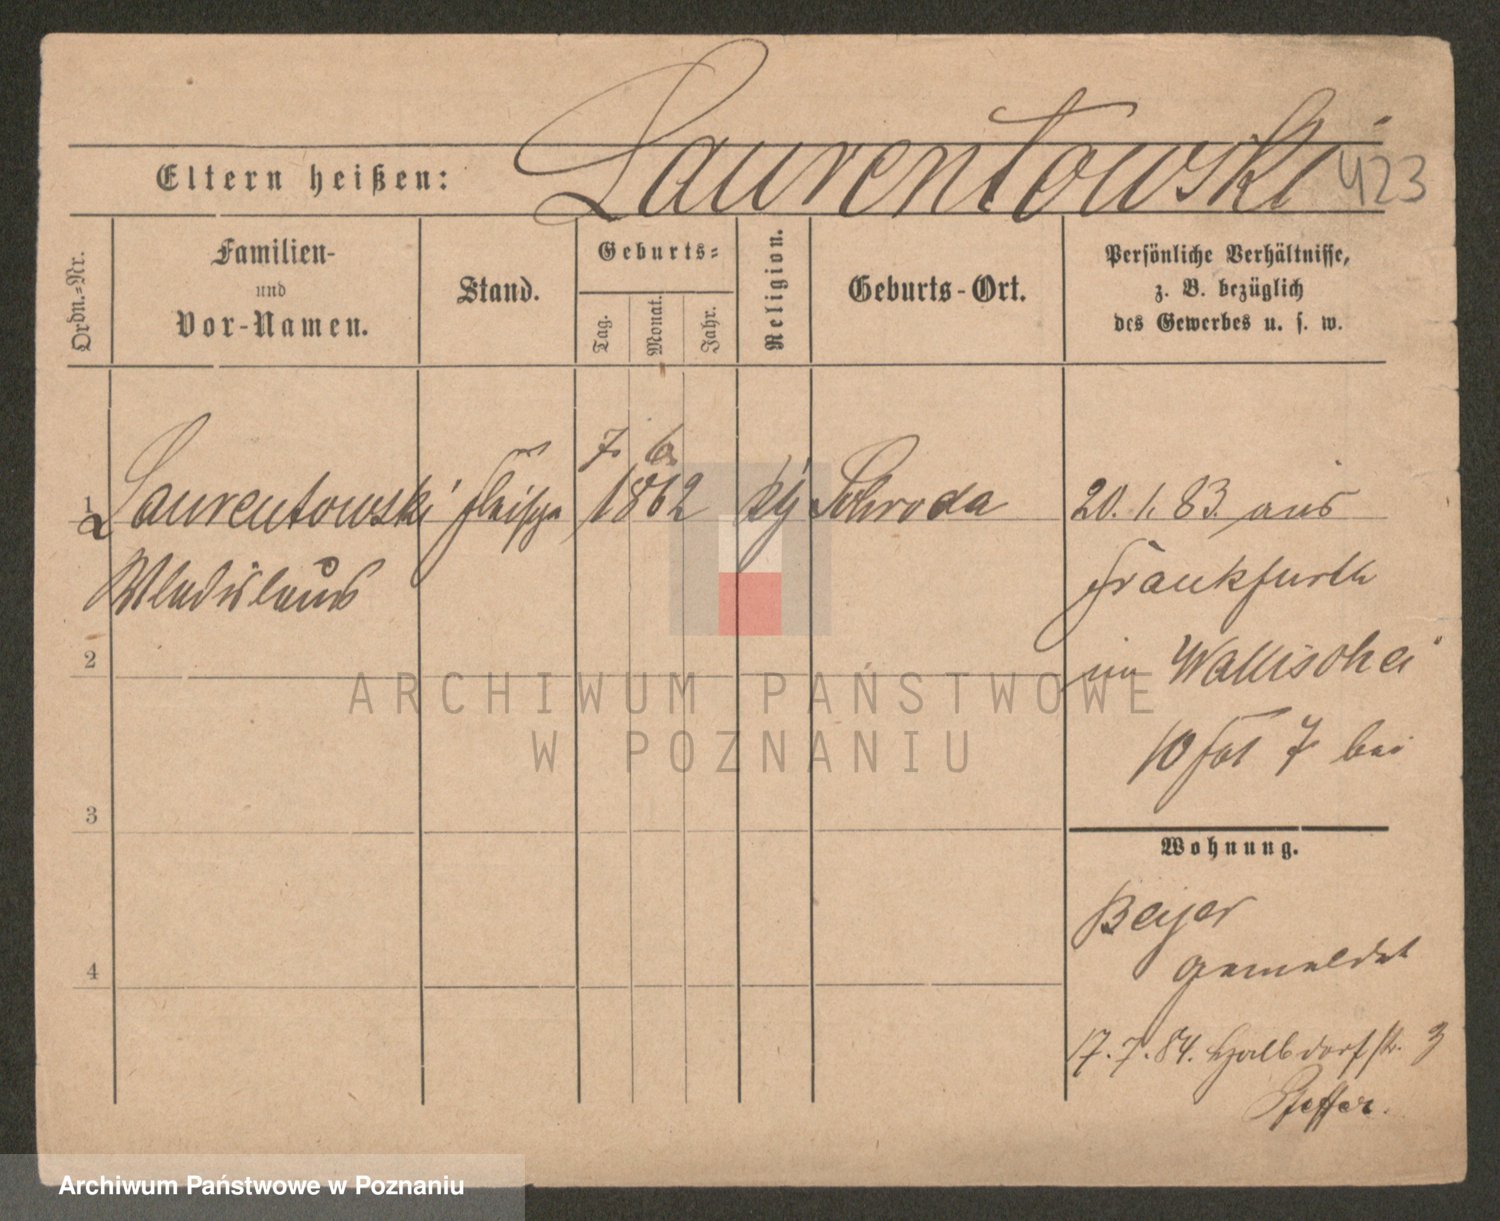 Laurentowski
423
Eltern heißen:
Ordn.-Nr.
Familien-
und
Vor-Namen.
Stand.
Geburts-
Tag.
Monat.
Jahr.
Religion.
Geburts-Ort.
Persönliche Verhältnisse,
z. B. bezüglich
des Gewerbes u. s. w.
7. 6.
1 Laurentowski 1862 Schroda 20. 1. 83. aus
Wladislaus Frankfurth
im Wallischei
2
10 7 bei
3
Wohnung.
Beyer
gemeldet
4
17. 7. 84. Halbdorfstr. 3
Pfeffer.
ARCHIWUM PAŃSTWOWE
W POZNANIU
Archiwum Państwowe w Poznaniu